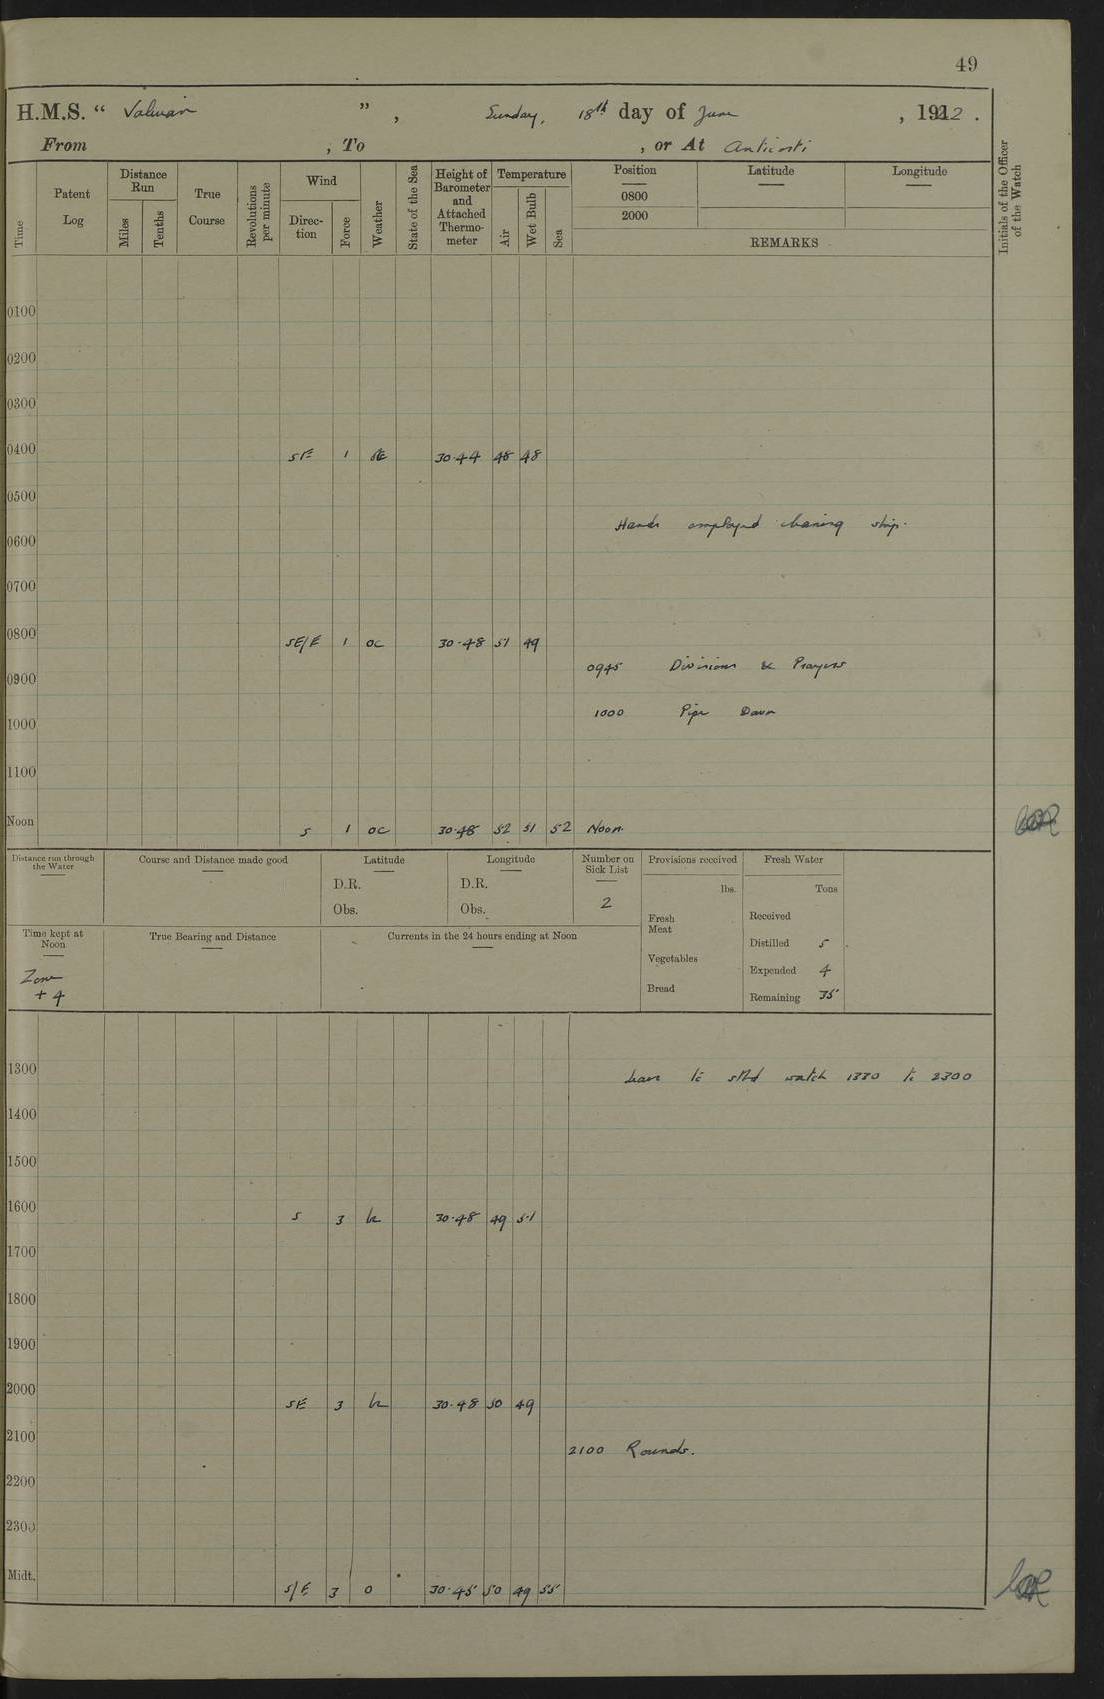 49
H.M.S. " Valerian ", Sunday, 18th day of June, 1922.
From , To , or At Anticosti
Time
Patent Log
Distance Run
Miles
Tenths
True Course
Revolutions per minute
Wind
Direc-tion
Force
Weather
State of the Sea
Height of Barometer and Attached Thermo-meter
Temperature
Air
Wet Bulb
Sea
Position
0800
2000
Latitude
Longitude
REMARKS
Initials of the Officer of the Watch
0100
0200
0300
0400 SE 1 30.44 48 48
0500
Hands employed cleaning ship.
0600
0700
0800 SE/E 1 oc 30.48 51 49
0945 Divisions & Prayers
0900
1000 Pipe Down
1000
1100
Noon S 1 oc 30.48 52 51 52 Noon.
Distance run through the Water
Course and Distance made good
Latitude
D.R.
Obs.
Longitude
D.R.
Obs.
Number on Sick List
2
Provisions received
lbs.
Fresh Meat
Vegetables
Bread
Fresh Water
Tons
Received
Distilled 5
Expended 4
Remaining 35
Time kept at Noon
Zone
+ 4
True Bearing and Distance
Currents in the 24 hours ending at Noon
1300
Leave to watch 1330 to 2300
1400
1500
1600 S 3 30.48 49 51
1700
1800
1900
2000 SE 3 30.48 50 49
2100
2100 Rounds.
2200
2300
Midt. S/E 3 o 30.45 50 49 55